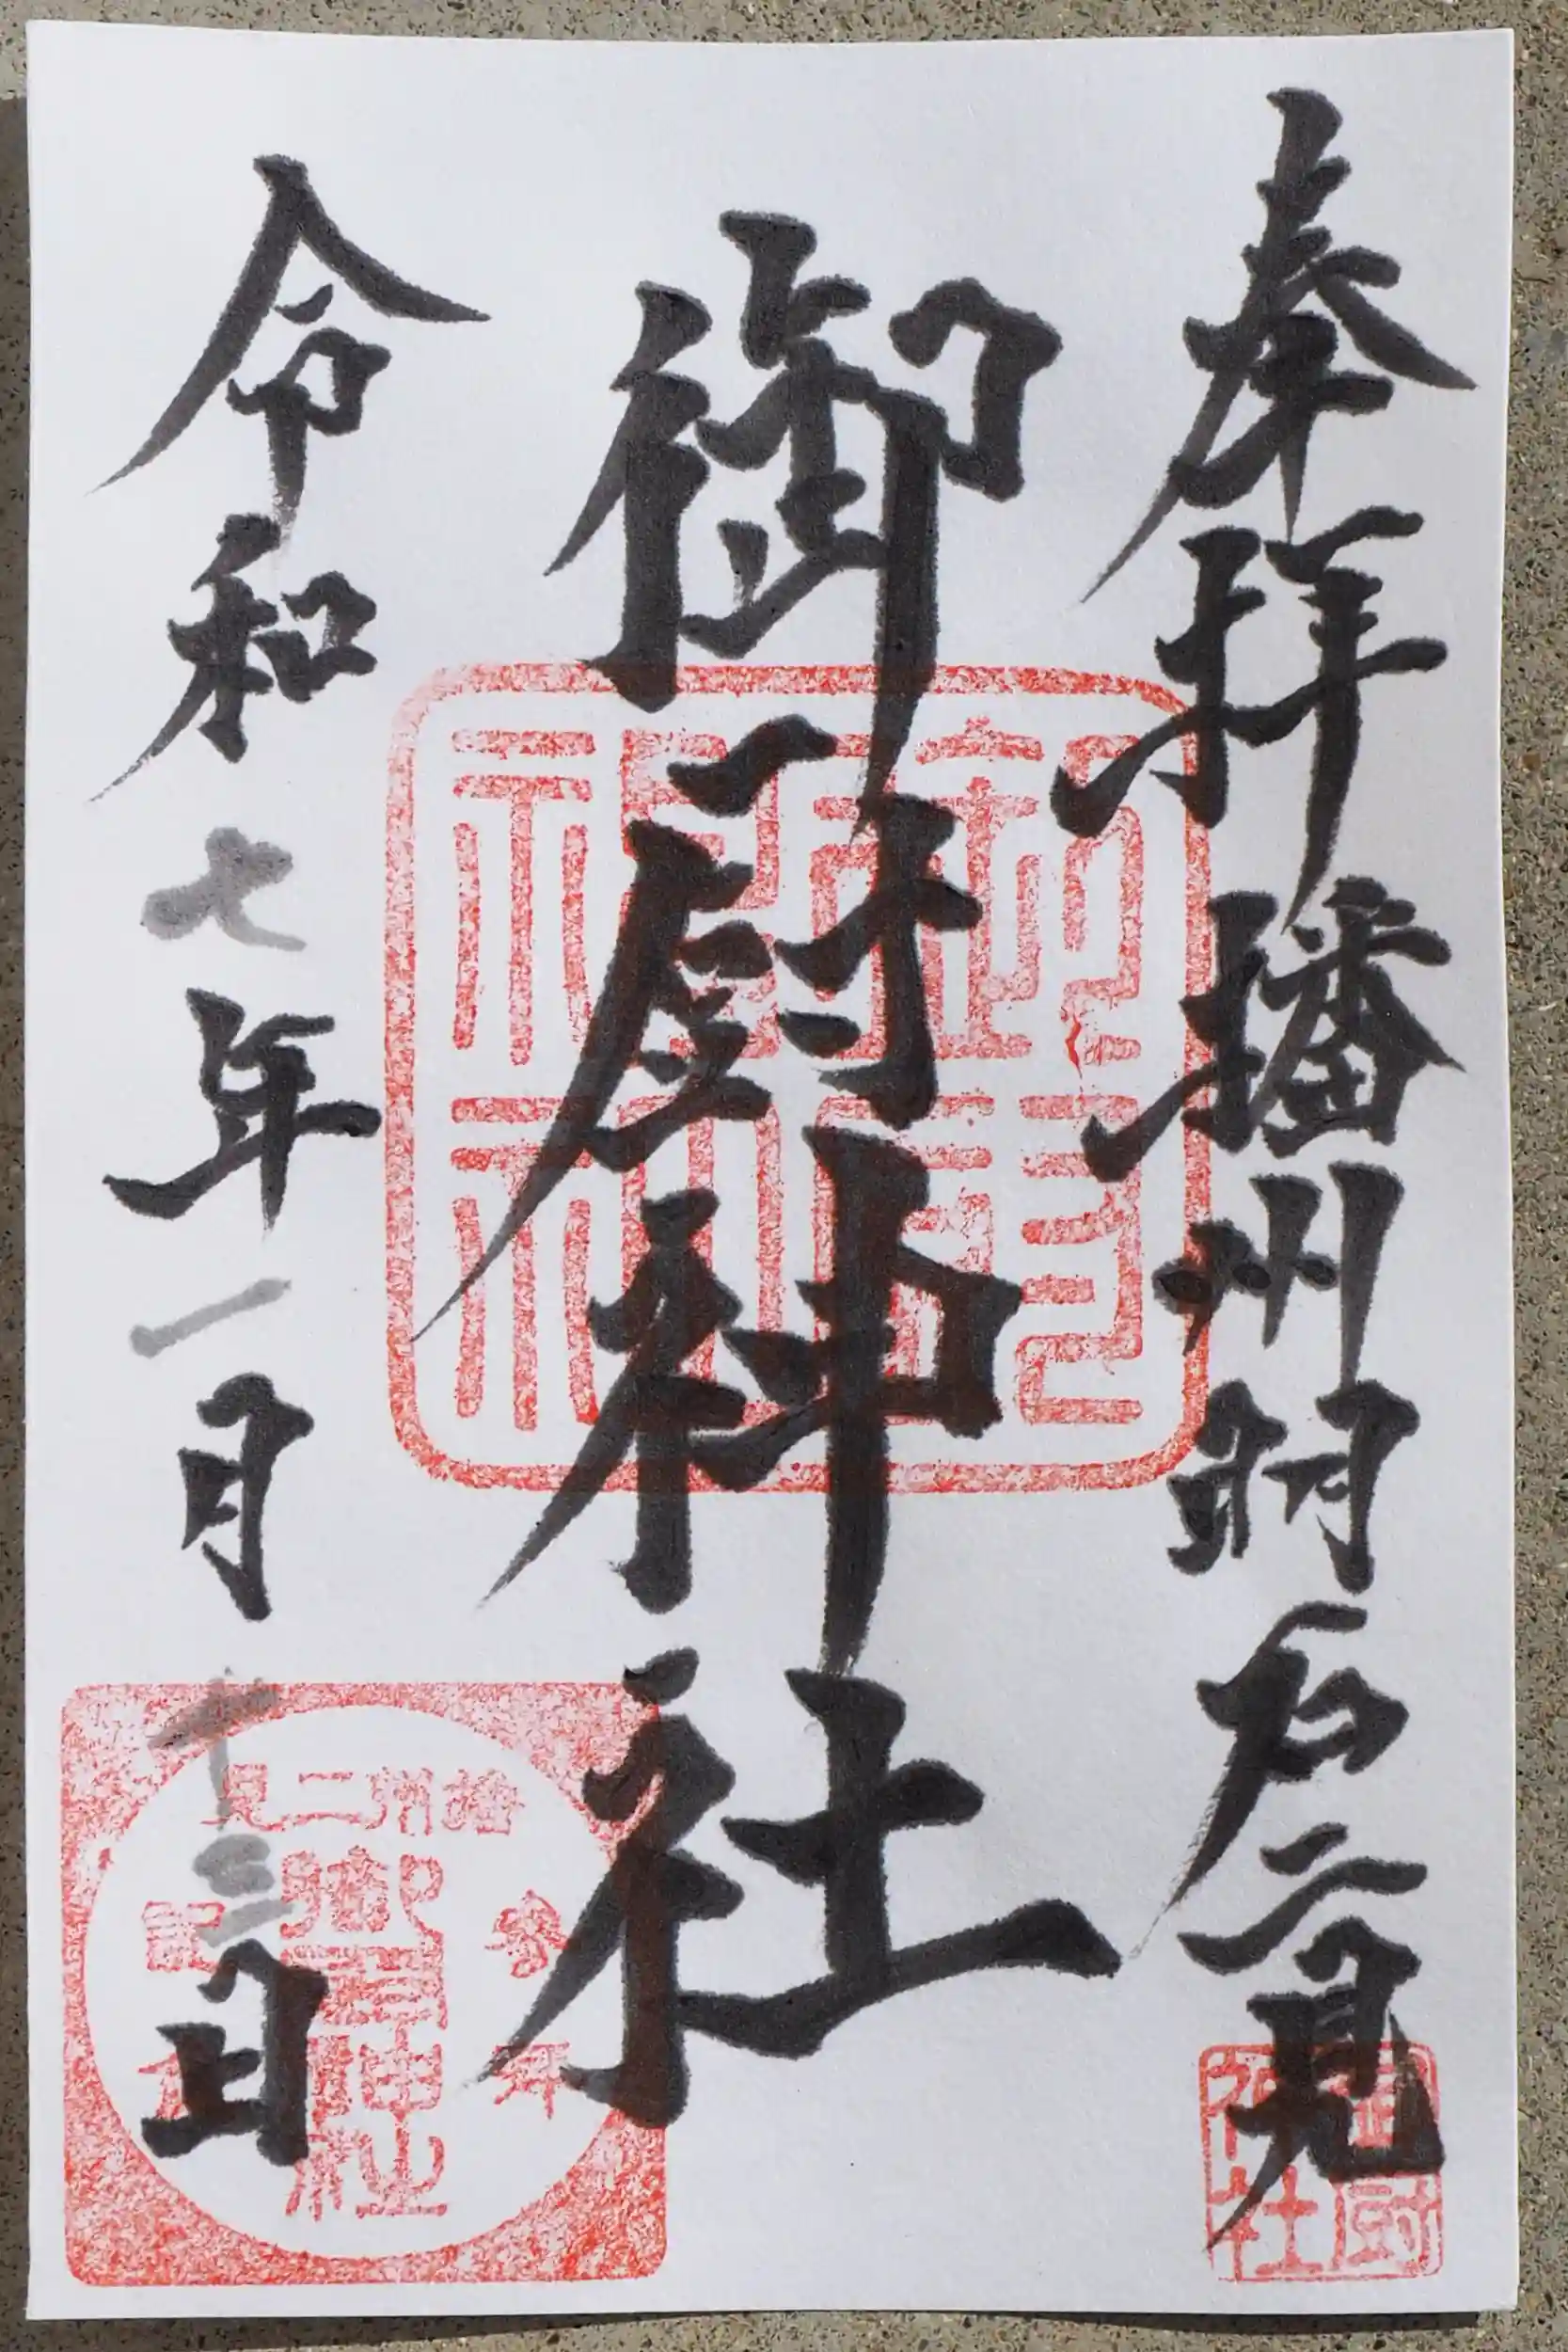 奉拝 播州明石二見
御厨神社
令和七年一月十三日
播州二見
参拝
御厨神社
記念
御厨神社